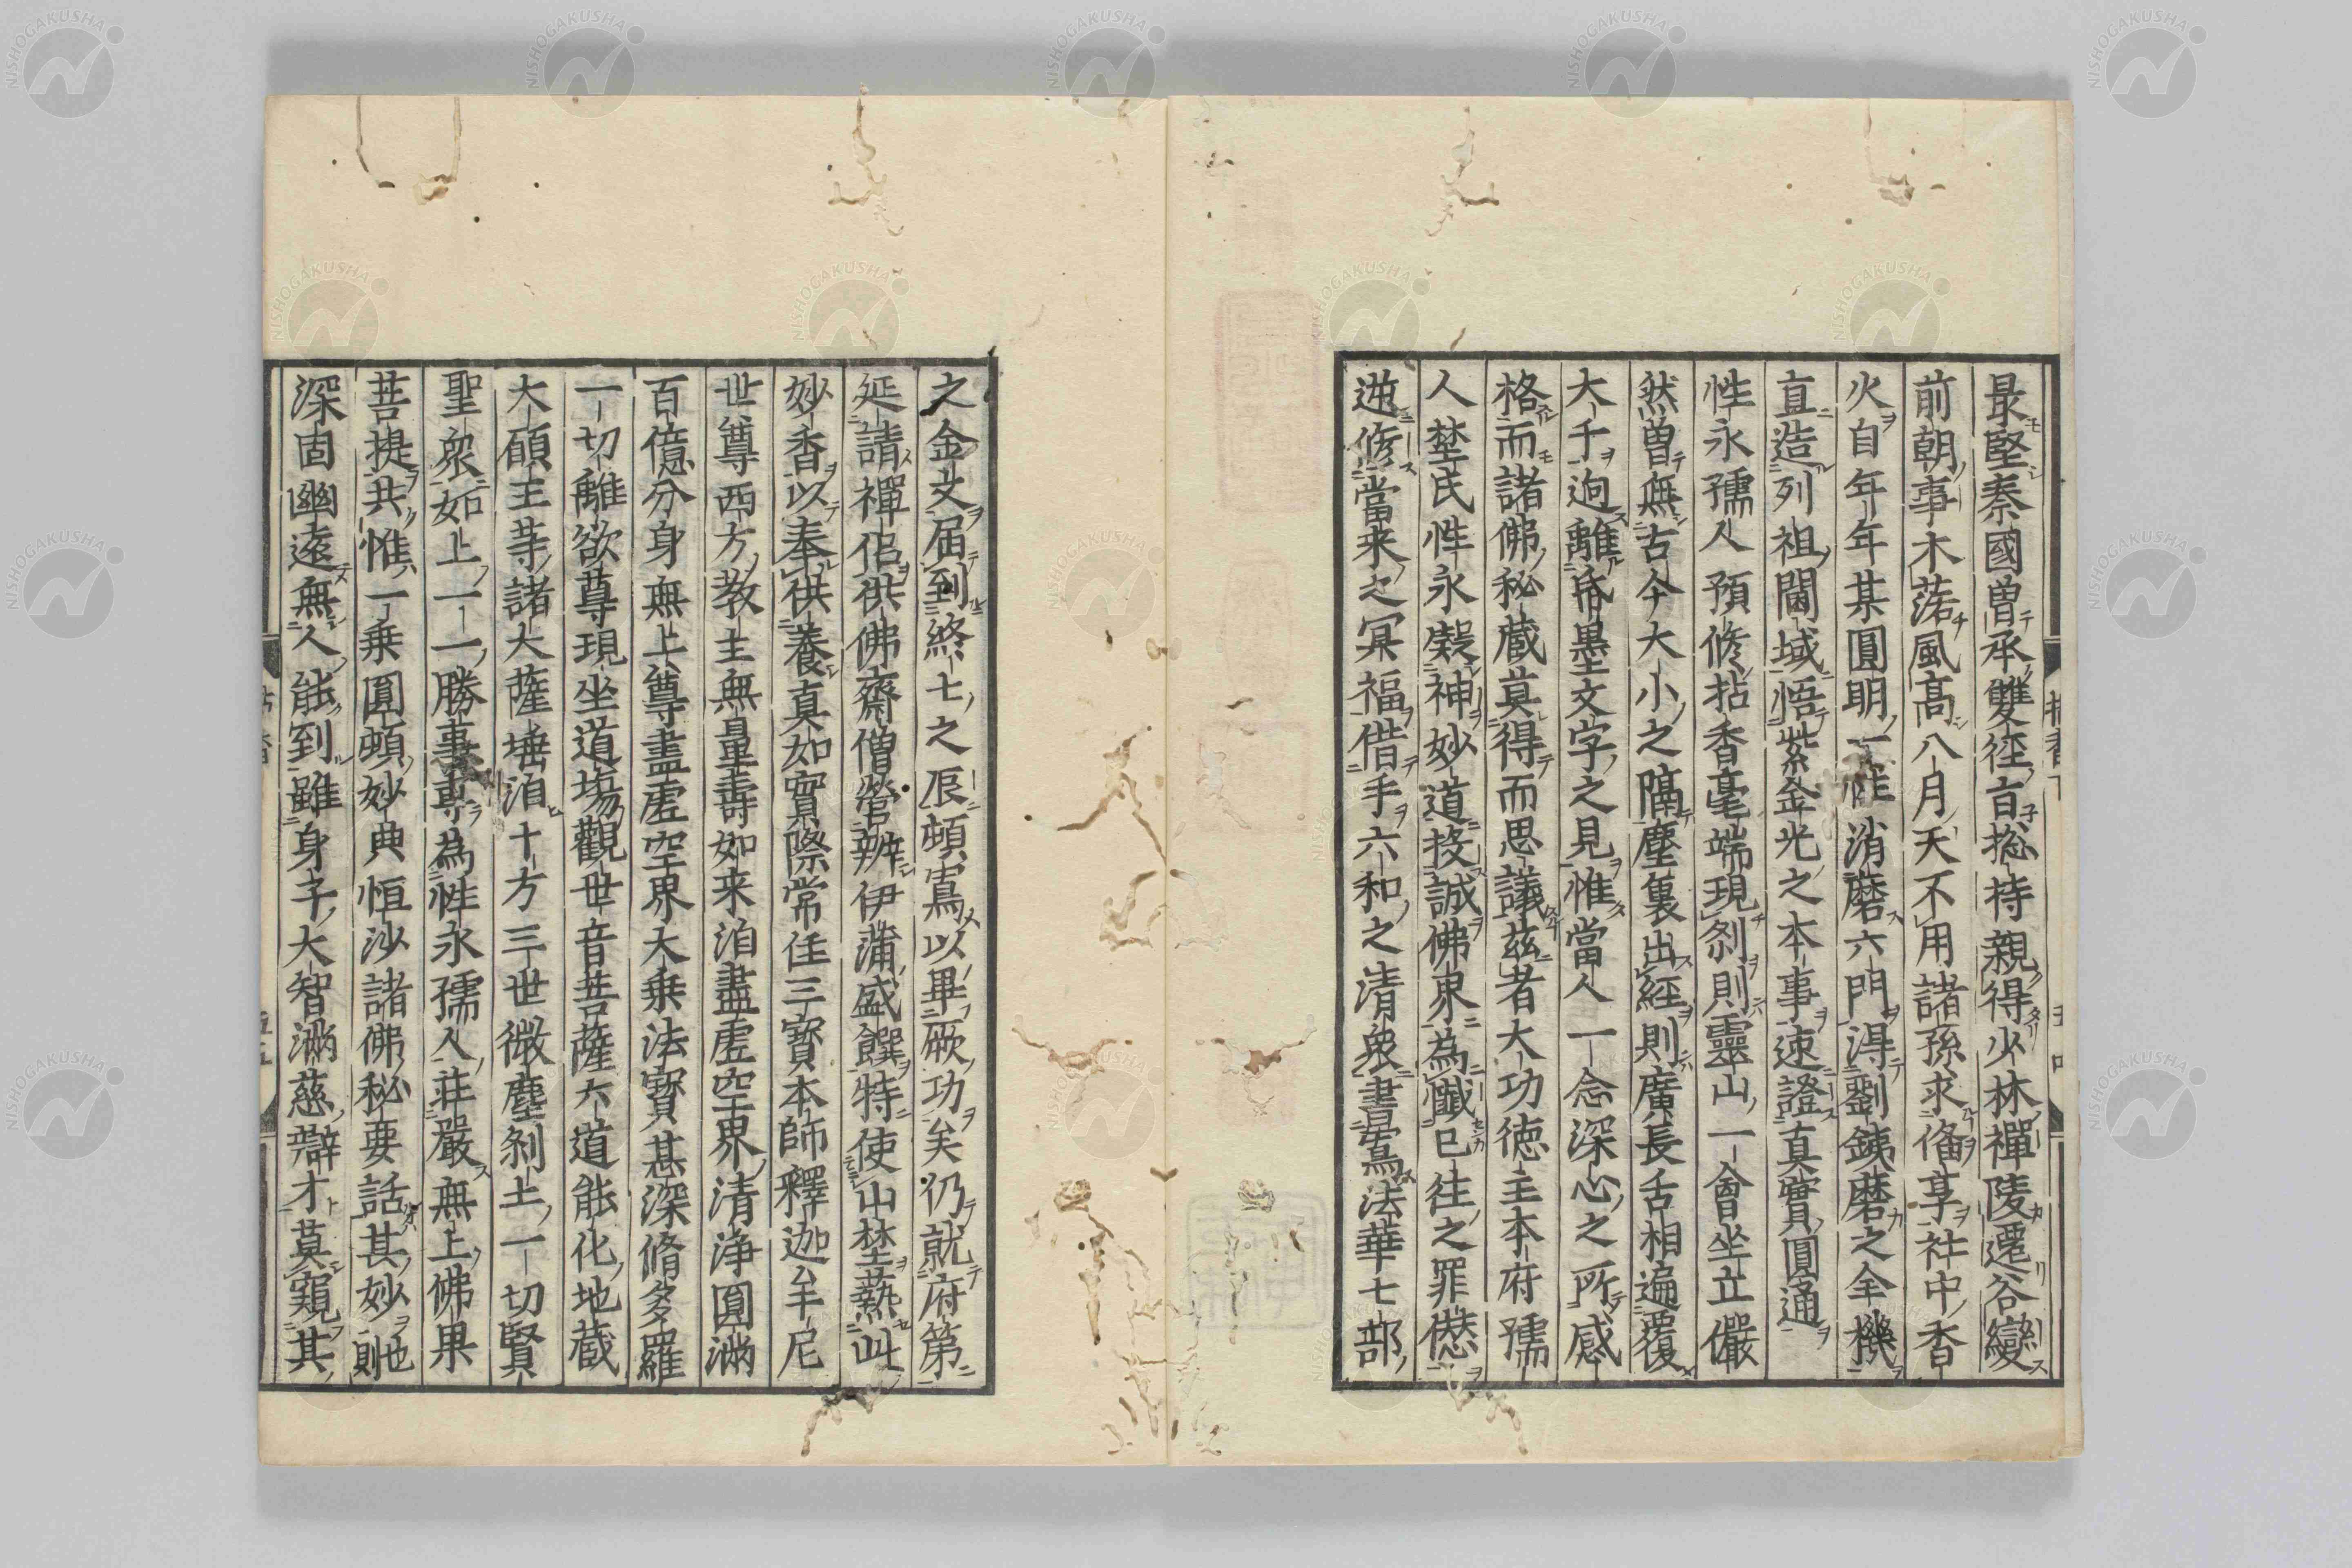 最堅秦國曾承雙徑百捴持親得少林禪陵遷谷變
前朝事木落風髙八月天不用諸孫求俻享社中香
火自年年某圓明一性消磨六門淂劉鉄磨之全機
直造列祖閫域悟紫金光之本事速證真實圓通
性永孺人預修拈香毫端現刹則靈山一會坐立儼
然曽無古今大小之隔塵裏出經則廣長舌相遍覆
大千逈離昏墨文字之見惟當人一念深心之所感
格而諸佛秘蔵莫得而思議茲者大功徳主本府孺
人埜氏性永凝神妙道投誠佛乘為懺已徃之罪愆
逆修當来之冥福借手六和之清衆書寫法華七部
之金文届到終七之辰頓寫以畢厥功矣仍就府第
延請禪侶供佛齋僧營辦伊蒲盛饌特使山埜爇此
妙香以奉供養真如實際常住三寳本師釋迦牟尼
世尊西方教主無量壽如来洎盡虗空界清浄圓滿
百億分身無上尊盡虗空界大乗法寳甚深脩多羅
一切離欲尊現坐道塲觀世音菩薩六道能化地蔵
大願主等諸大薩埵洎十方三世微塵刹土一切賢
聖衆如上一一勝事專為性永孺人莊嚴無上佛果
菩提共惟一乗圓頓妙典恒沙諸佛秘要話其妙則也
深固幽遠無人能到雖身子大智滿慈辯才莫窺其